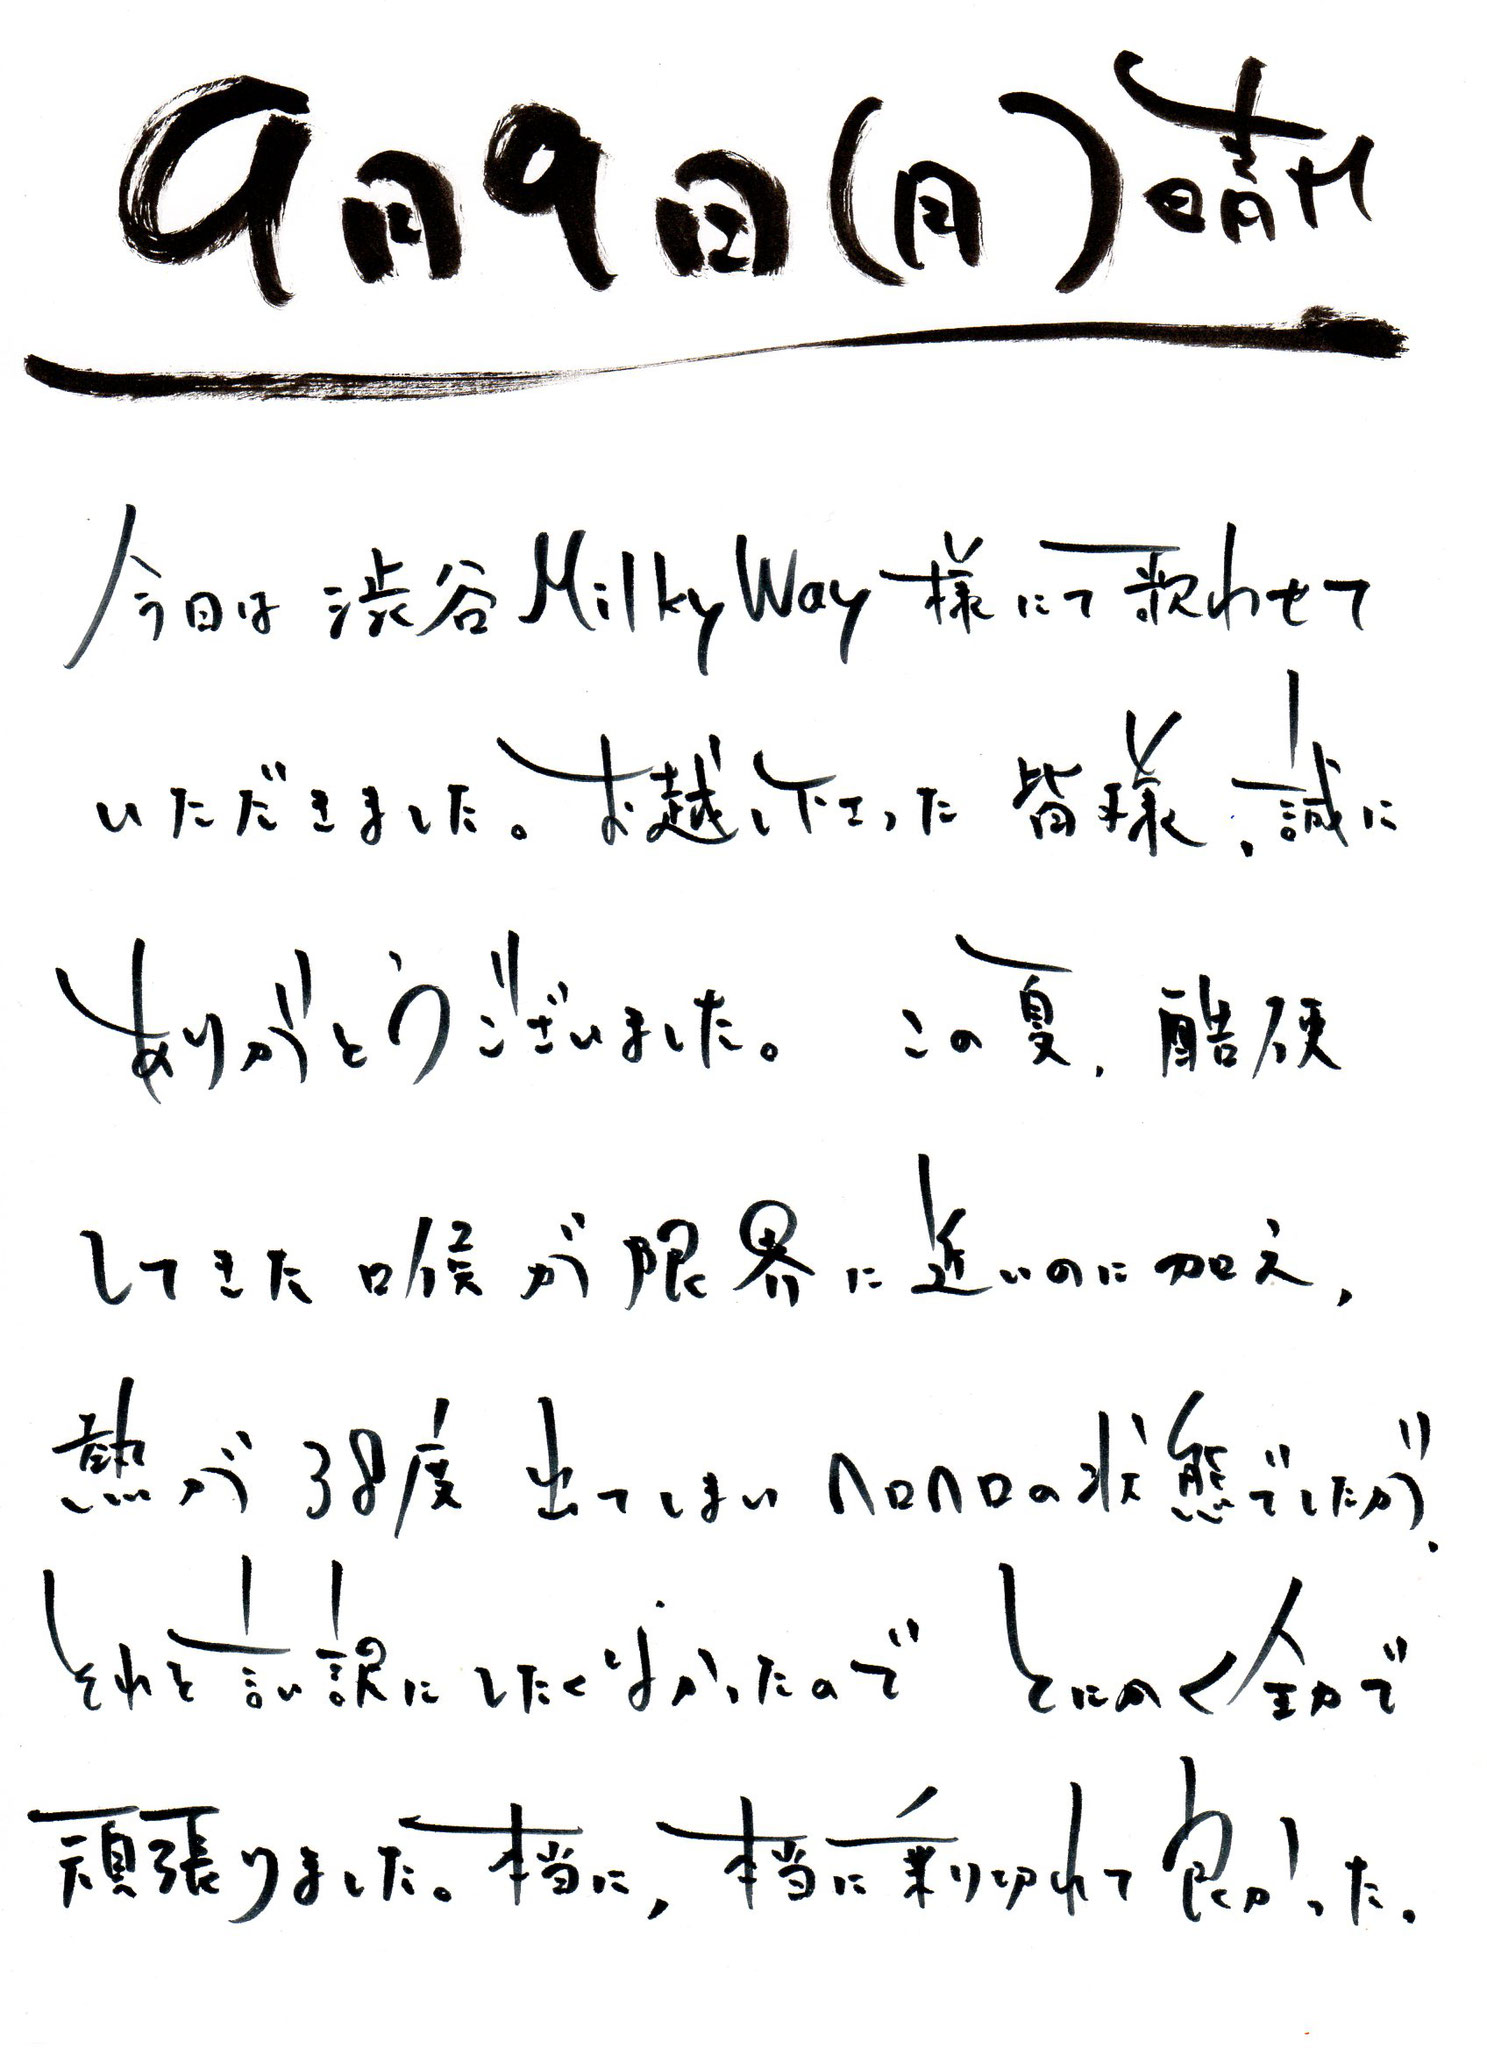 9月9日(月)晴れ
今日は 渋谷 Milky Way 様にて歌わせて
いただきました。お越し下さった 皆様、誠に
ありがとうございました。 この夏、酷使
してきた 喉が 限界に近いのに加え、
熱が 38度 出てしまい ヘロヘロの状態でしたが、
それを言い訳にしたくなかったので とにかく全力で
頑張りました。本当に、本当に乗り切れて良かった。